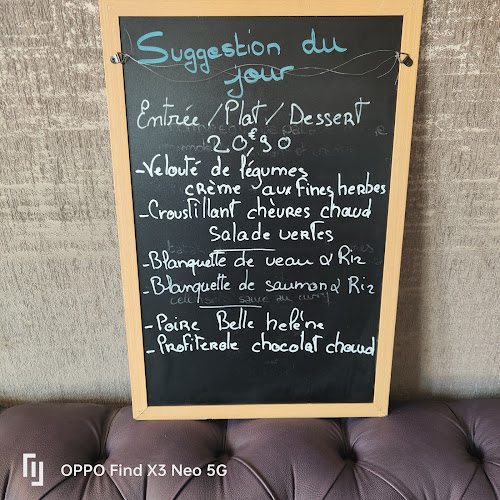 Suggestion du
jour
Entrée / Plat / Dessert
20,€90
-Velouté de légumes
crème aux fines herbes
-Croustillant chèvres chaud
salade vertes
-Blanquette de veau & Riz
-Blanquette de saumon & Riz
-Poire Belle helène
-Profiterole chocolat chaud
OPPO Find X3 Neo 5G